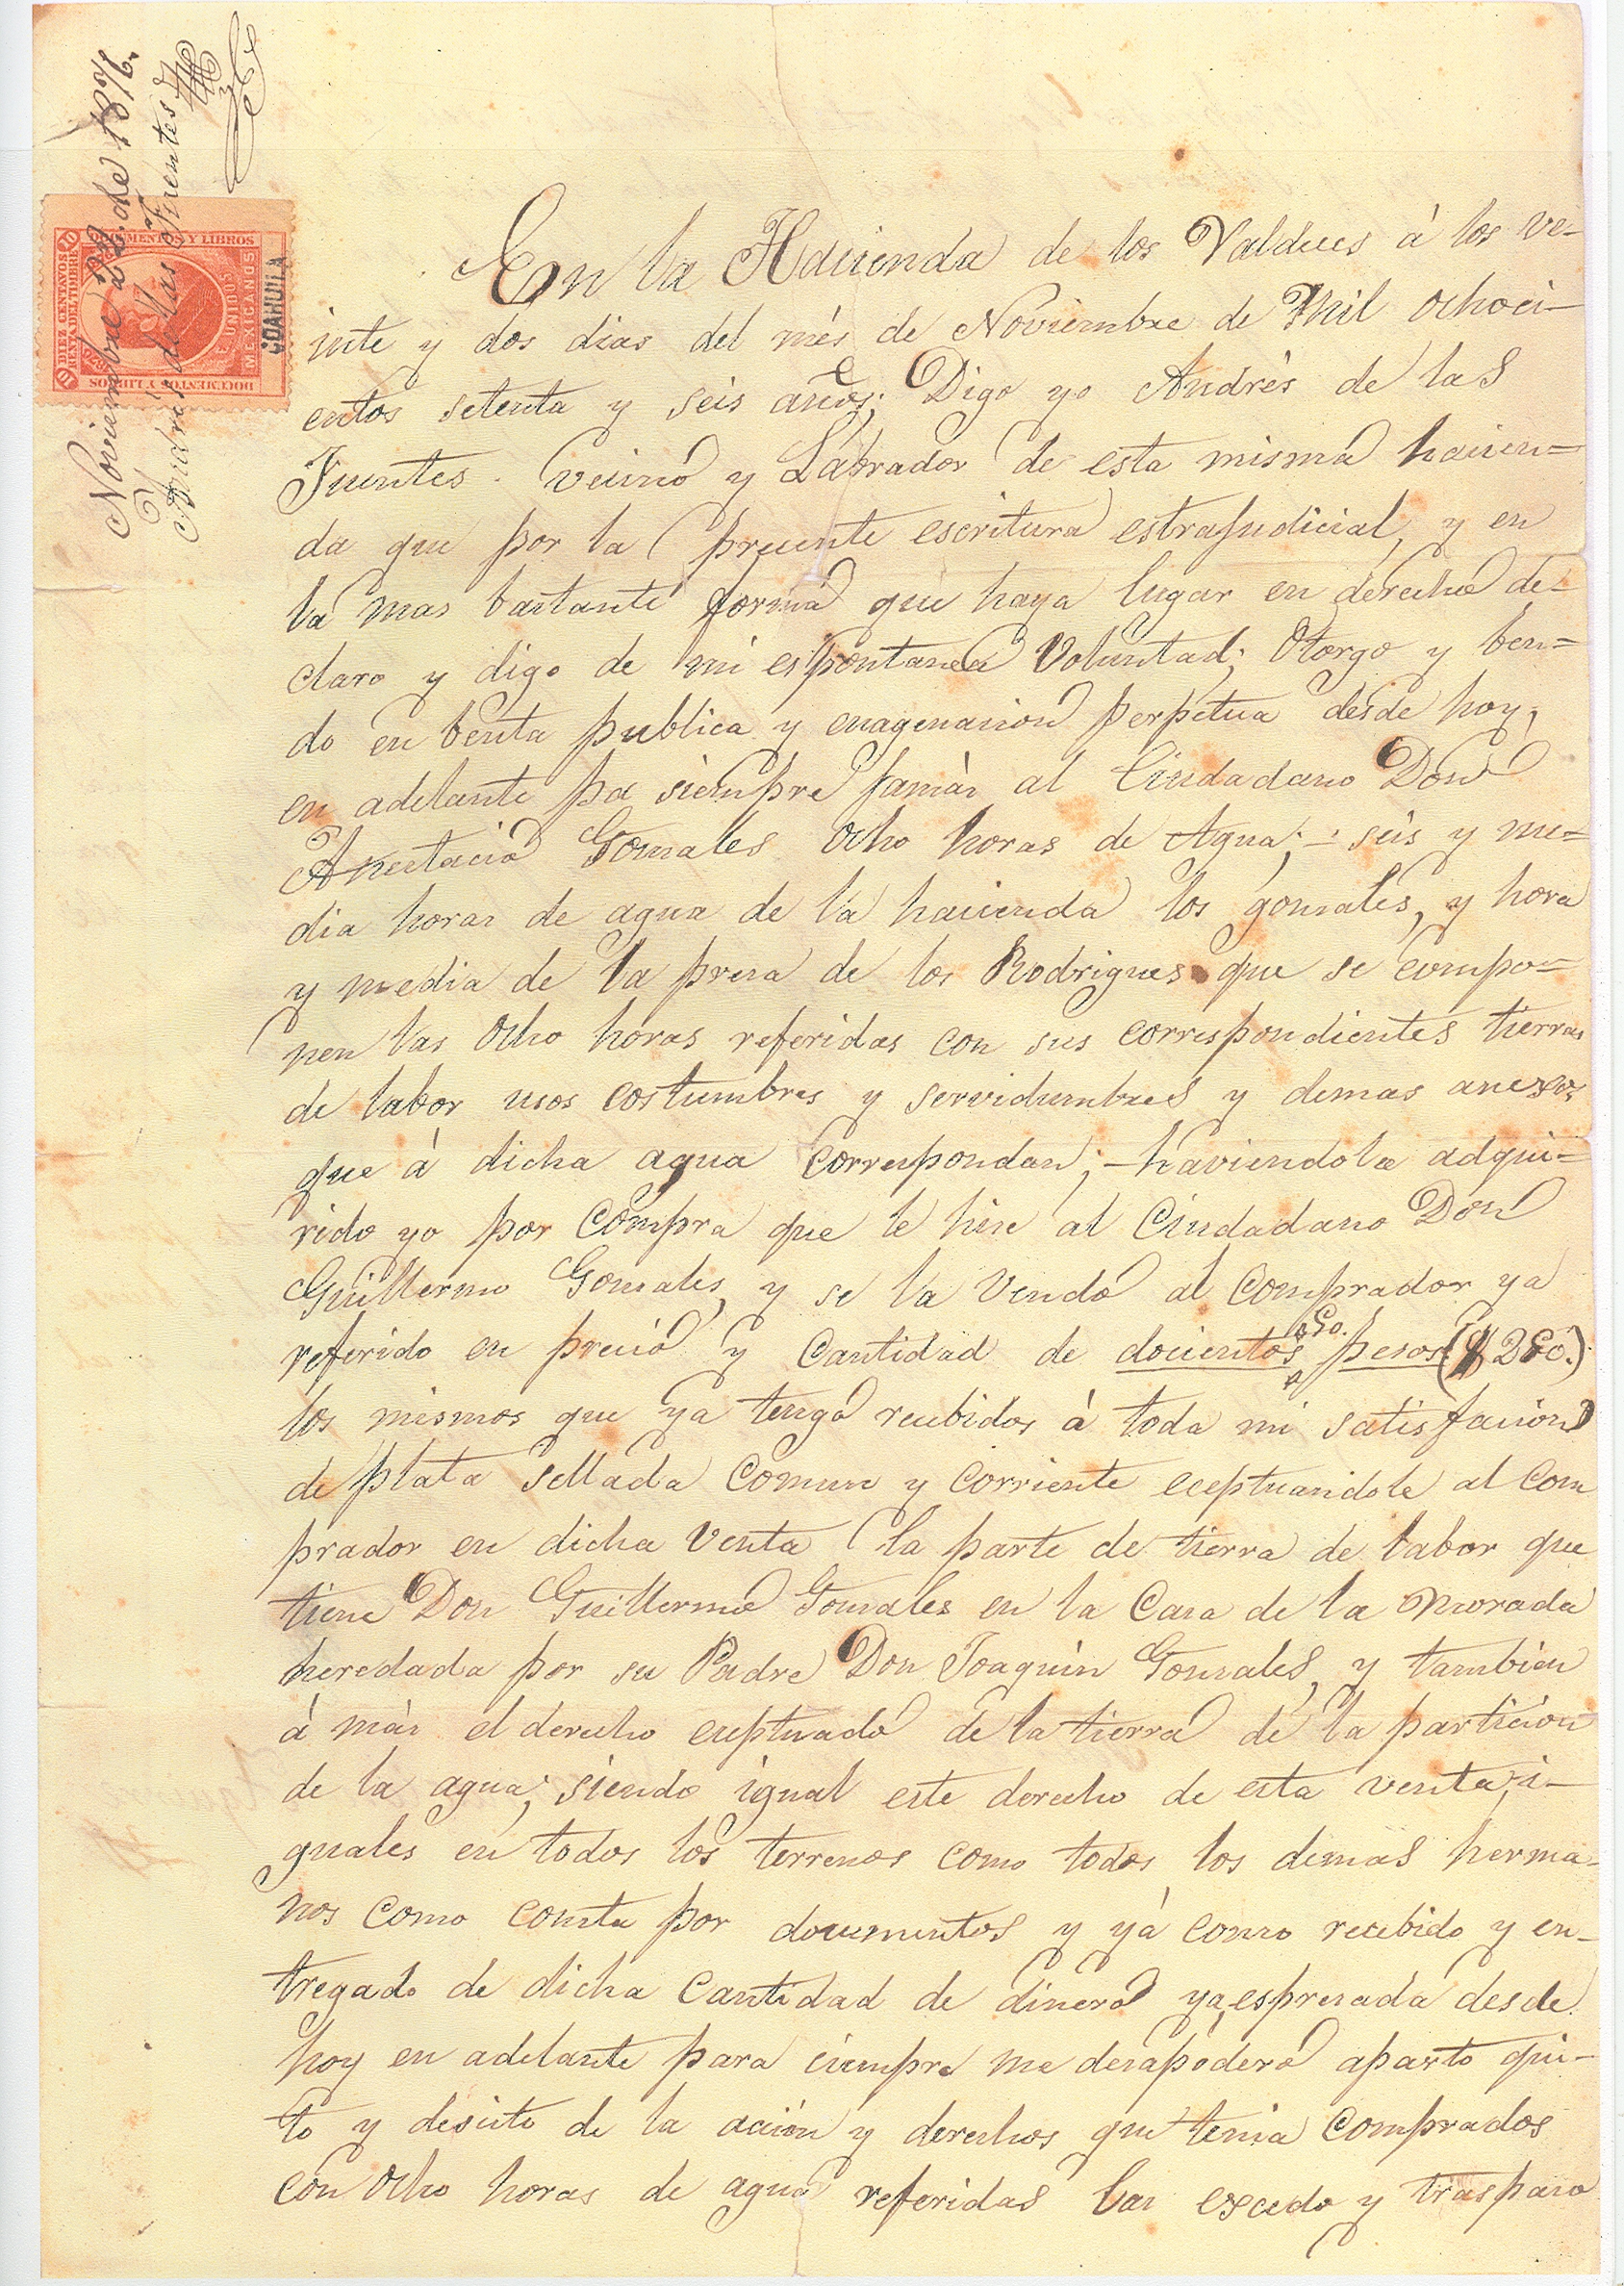 Noviembre 22 de 1876.
Andrés de las Fuentes
DOCUMENTOS Y LIBROS
DIEZ CENTAVOS
RENTA DEL TIMBRE
E. UNIDOS
MEXICANOS
DOCUMENTOS Y LIBROS
10
COAHUILA
En la Hacienda de los Valdeces á los ve-
inte y dos dias del més de Noviembre de Mil ochoci-
entos setenta y seis años; Digo yo Andrés de las
Fuentes. vecino y Labrador de esta misma hacien=
da que por la presente escritura estrajudicial, y en
la mas bastante forma que haya lugar en derecho de-
claro y digo de mi espontanea Voluntad; Otorgo y ben=
do en benta publica y enagenacion perpetua desde hoy,
en adelante pa siempre jamás al Ciudadano Don
Anastacio Gonzales ocho horas de Agua; = seis y me=
dia horas de agua de la hacienda los gonzales, y hora
y media de la presa de los Rodrigues que se compo=
nen las ocho horas referidas con sus correspondientes tierras
de labor usos costumbres y servidumbres y demas anexos,
que á dicha agua correspondan; - haviendola adqui=
rido yo por Compra que le hice al Ciudadano Don
Guillermo Gonzales, y se la Vendo al Comprador ya
referido en precio y Cantidad de docientos pesos ($
los mismos que ya tengo recibidos á toda mi satisfacion
de plata sellada Comun y Corriente eceptuandole al Com
prador en dicha Venta la parte de tierra de labor que
tiene Don Guillermo Gonzales en la Casa de la Morada
heredada por su Padre Don Joaquin Gonzales, y tambien
á más el derecho eceptuado de la tierra de la particion
de la agua; siendo igual este derecho de esta venta, i-
guales en todos los terrenos como todos los demas herma-
nos como consta por documentos y yá como recibido y en-
tregado de dicha Cantidad de dinero ya espresada desde
hoy en adelante para ciempre me desapodero aparto qui-
to y desisto de la acción y derechos que tenia Comprados
con ocho horas de agua referidas las escedo y traspaso